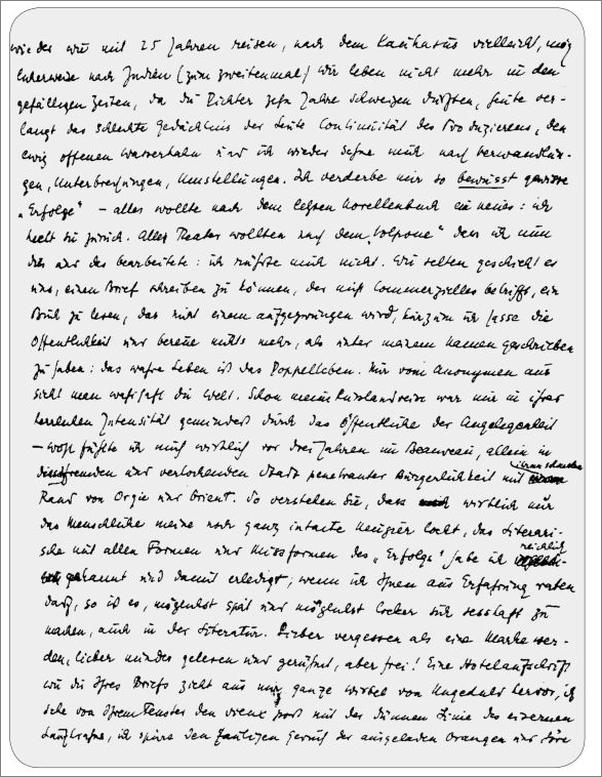 wieder wie mit 25 Jahren reisen, nach dem Kaukasus vielleicht, mög
licherweise nach Indien (zum zweitenmal) Wir leben nicht mehr in den
gefälligen Zeiten, da die Dichter zehn Jahre schweigen durften, heute ver-
langt das schlechte Gedächtnis der Leute Continuität des Produzierens, den
ewig offenen Wasserhahn und ich wieder sehne mich nach Verwandlun-
gen, Unterbrechungen, Umstellungen. Ich verderbe mir so bewusst gewisse
„Erfolge" – alles wollte nach dem letzten Novellenbuch ein neues: ich
hielt sie zurück. Alle Theater wollten nach dem „Volpone" den ich nun
dies und das bearbeitete: ich rührte mich nicht. Wie selten geschieht es
uns, einen Brief schreiben zu können, der nicht Commerzielles betrifft, ein
Buch zu lesen, das nicht einem aufgezwungen wird, kurzum ich hasse die
Öffentlichkeit und bereue nichts mehr, als unter meinem Namen geschrieben
zu haben: das wahre Leben ist das Doppelleben. Nur vom Anonymen aus
sieht man wahrhaft die Welt. Schon meine Russlandreise war mir in ihrer
herrlichen Intensität gemindert durch das Öffentliche der Angelegenheit
– wohl fühlte ich mich wirklich vor drei Jahren im Beauveau, allein in
fremden und verlockenden Stadt penetranter Bürgerlichkeit mit
Rand von Orgie und Orient. So verstehen Sie, dass wirklich nur
das Menschliche meine noch ganz intacte Neugier lockt, das Literari-
sche mit allen Formen und Missformen des „Erfolgs" habe ich reichlich
gekannt und damit erledigt; wenn ich Ihnen aus Erfahrung raten
darf, so ist es, möglichst spät und möglichst locker sich sesshaft zu
machen, auch in der Literatur. Lieber vergessen als eine Marke wer-
den, lieber minder gelesen und gerühmt, aber frei! Eine Hotelaufschrift
wie die Ihres Briefs zieht aus mir ganze Wirbel von Ungeduld hervor, ich
sehe von Ihrem Fenster den vieux port mit der dünnen Linie des eisernen
ich spüre den fauligen Geruch der ausgeladen Orangen und höre